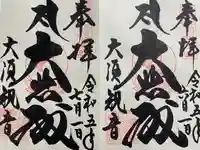 奉拝
大悲殿
令和五年
七月一日
大須観音
奉拝
大悲殿
令和五年
七月一日
大須観音